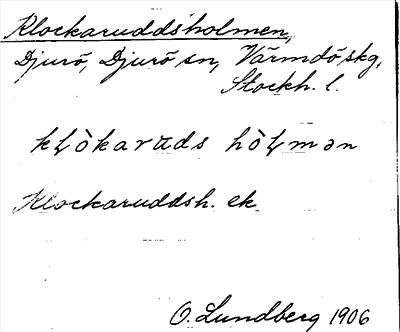 Klockaruddsholmen,
Djurö, Djurö sn, Värmdö skg,
Stockh. l.
kḷòkaruds hòḷmən
Klockaruddsh. ek
O. Lundberg 1906